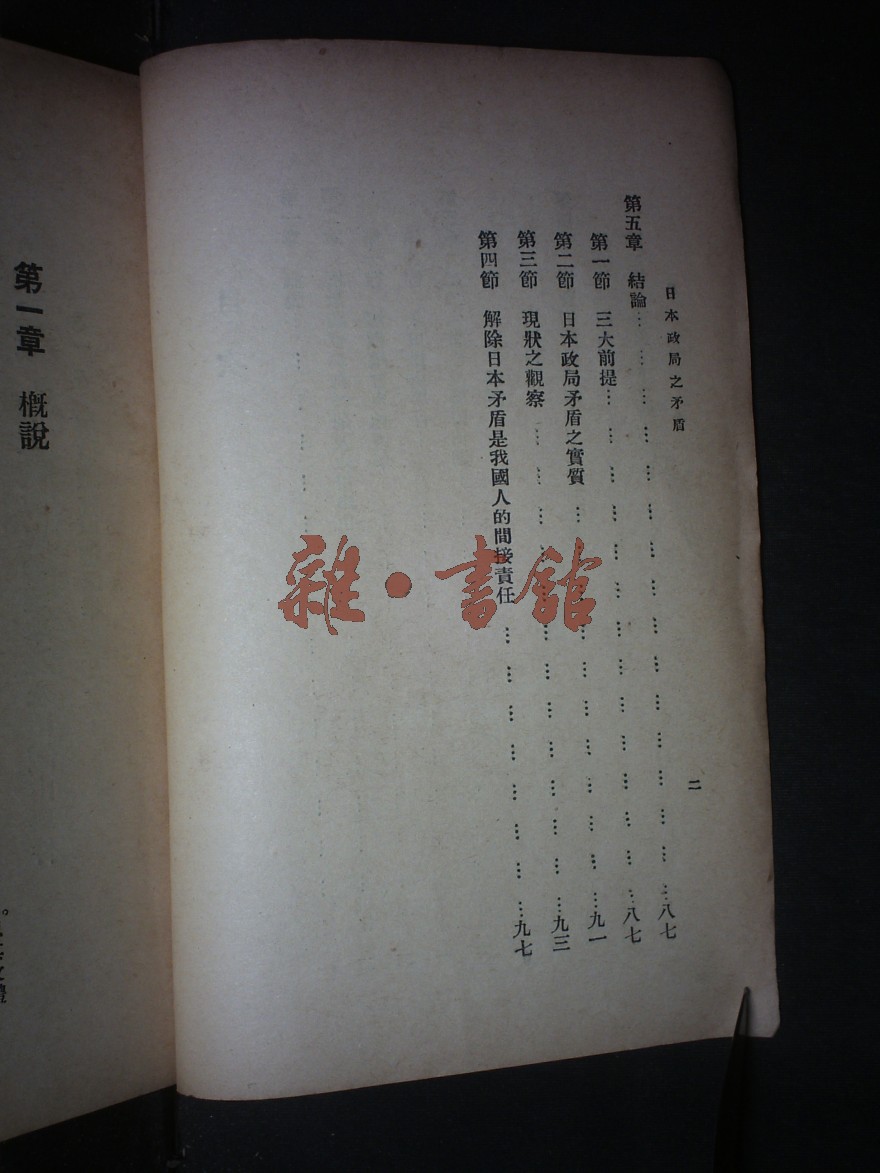 日本政局之矛盾
二
第五章 結論… … … … … … … … … … … … … … …八七
第一節 三大前提… … … … … … … … … … … … …八七
第二節 日本政局矛盾之實質 … … … … … … … … … …九一
第三節 現狀之觀察 … … … … … … … … … … … …九三
第四節 解除日本矛盾是我國人的間接責任 … … … … … … … …九七
雜·書館
第一章 概說